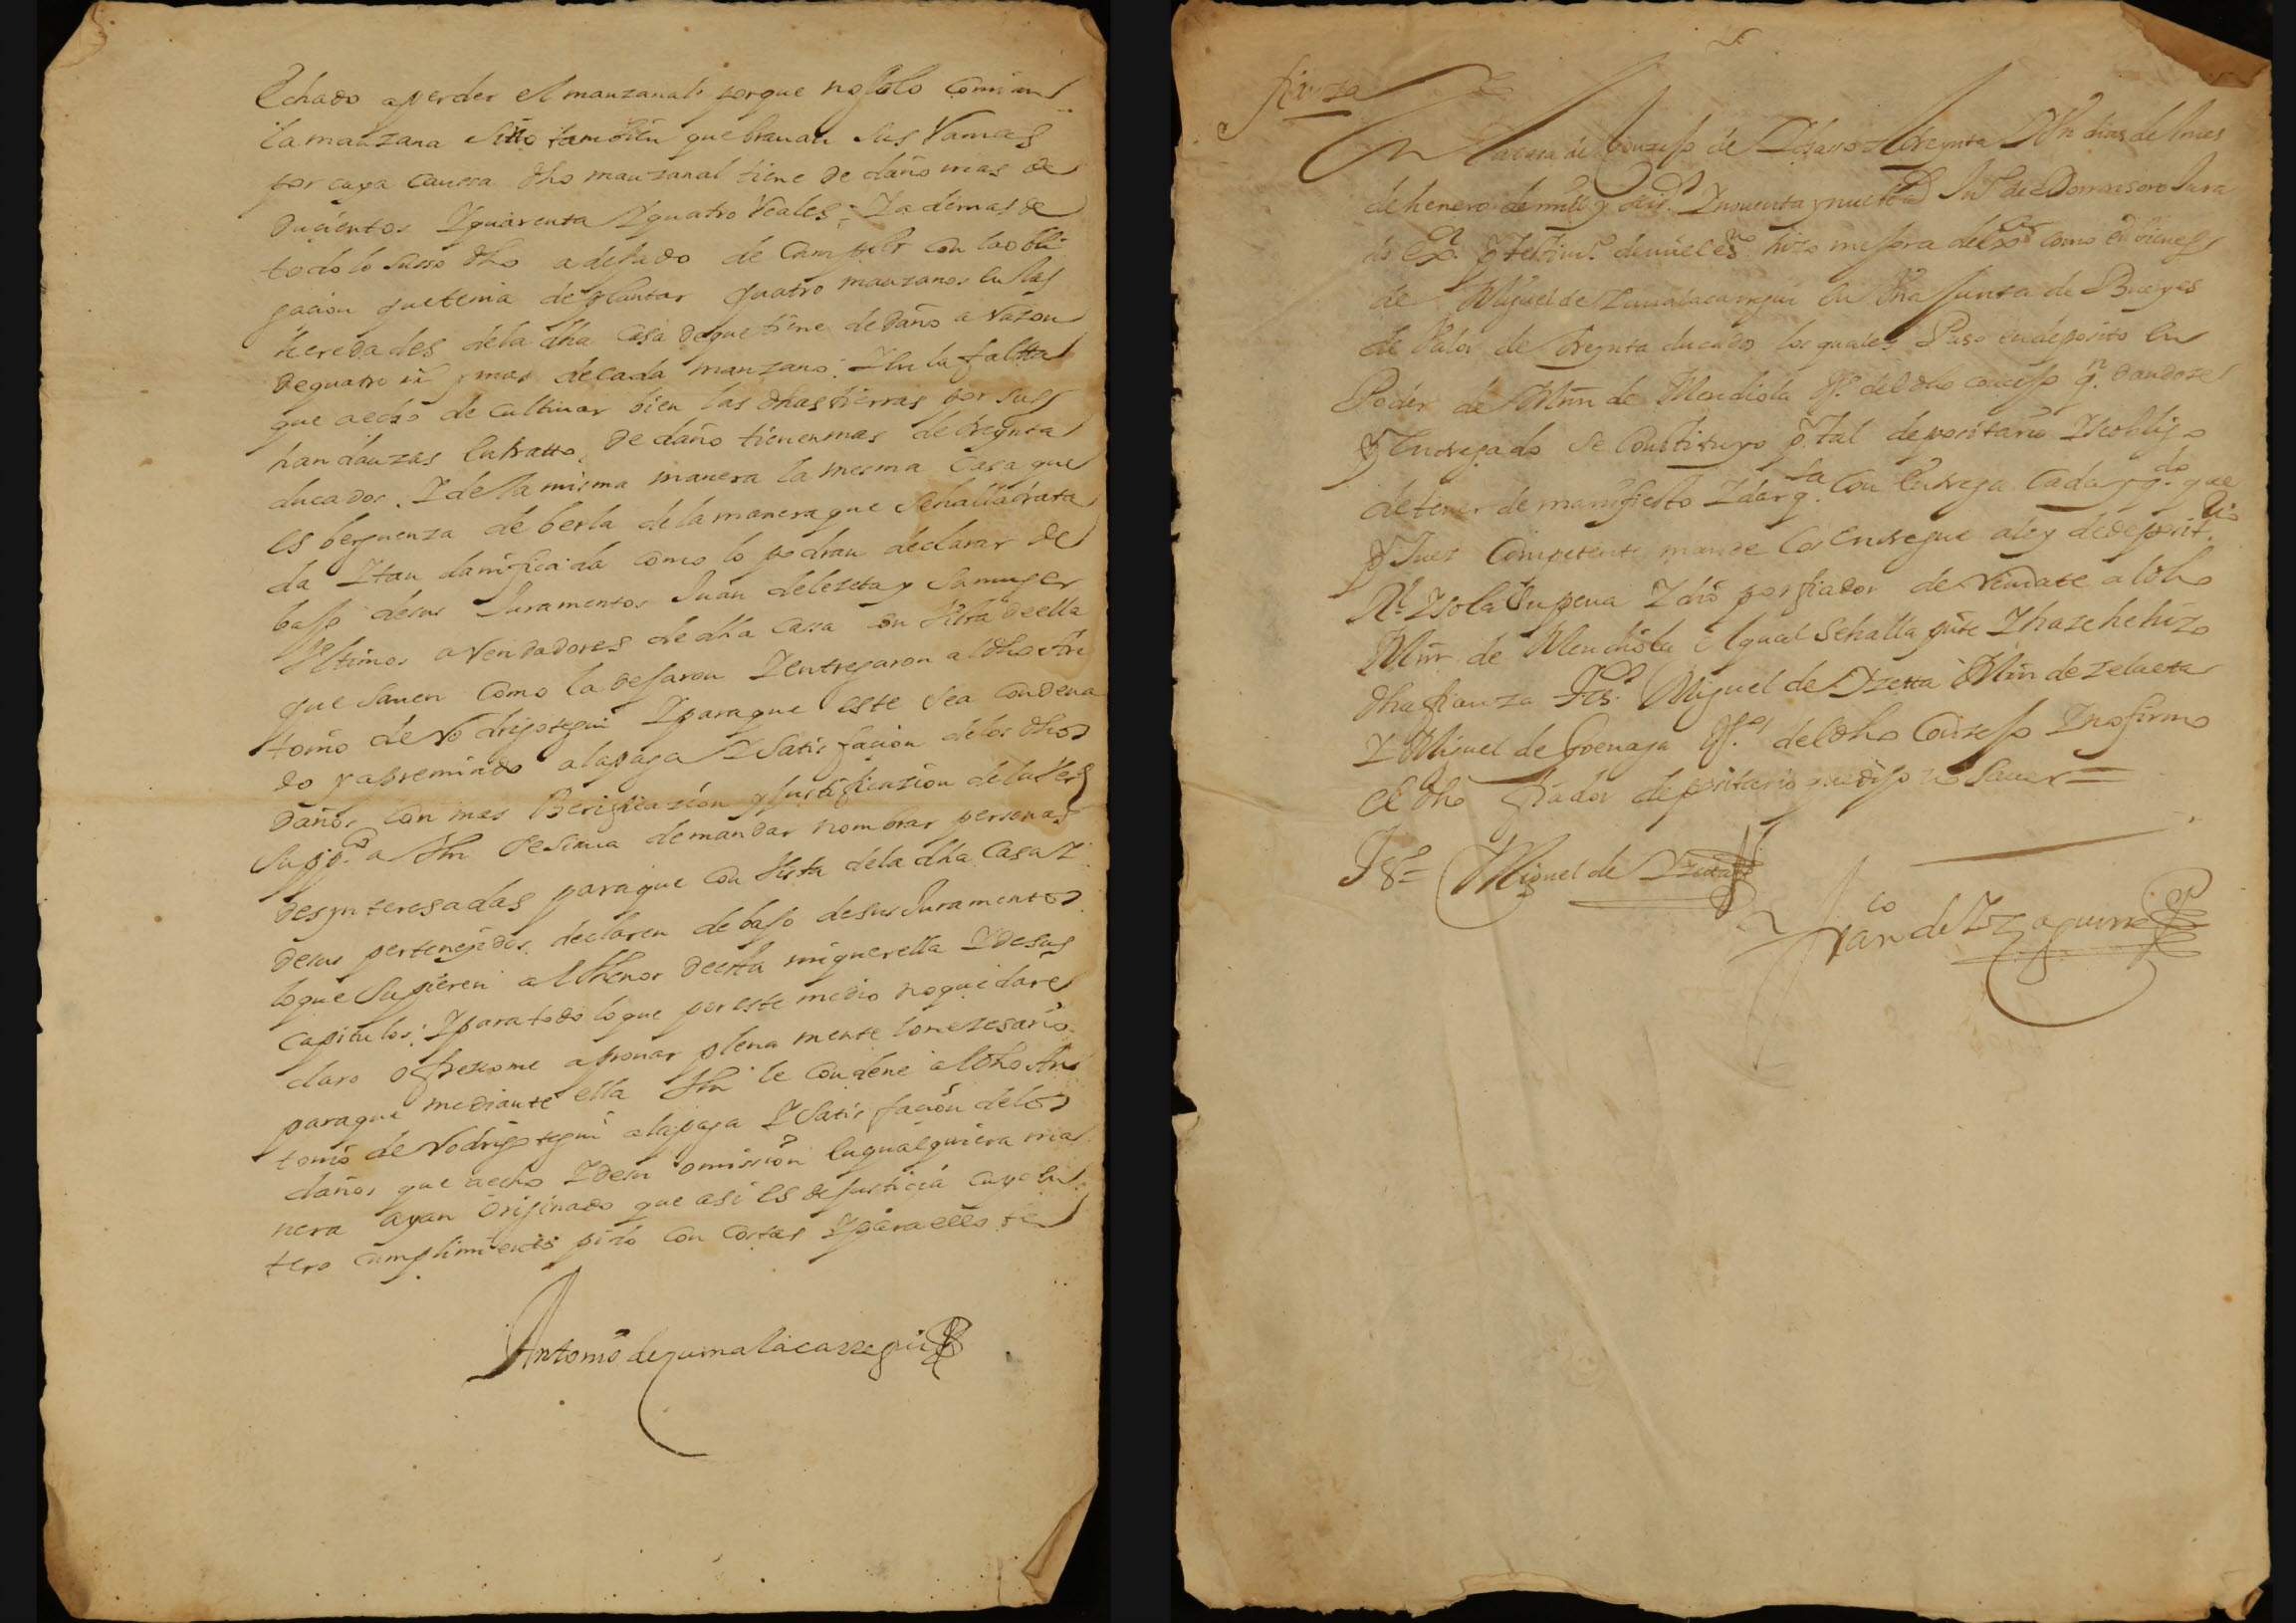 Echado a perder el manzanal porque no solo comian
la manzana sino tambien quebravan sus Ramas
por cuya caussa dho manzanal tiene de daño mas de
ducientos y quarenta y quatro Reales: y ademas de
todo lo susso dho a dejado de cumplir con la obli
gacion que tenia de plantar quatro manzanos en las
heredades de la dha casa de que tiene de daño a razon
de quatro y mas de cada manzano: y en la faltta
que a echo de cultivar bien las dhas tierras por sus
handanzas de daño tiene mas de treynta
ducados. y de la misma manera la mesma casa que
es berguenza de berla de la manera que se halla trata
da y tan danificada como lo podran declarar de
bajo de sus Juramentos Juan de lezeta y su muger
Ultimos arrendadores de dha cassa con Vista de ella
que saven como la dejaron y entregaron al dho An
tonio de Rodrigotegui y para que este sea condena
do y apremiado a la paga y satisfacion de los dhos
daños con mas Berificazion y justificazion de la Ver
Supp.co a Vm se sirva de mandar nombrar personas
desynteresadas para que con Vista de la dha Casa y
de sus pertenecidos declaren debajo de sus Juramentos
lo que supieren al thenor de esta mi querella y de sus
capitulos: y para todo lo que por este medio no quedare
claro ofrezcome a provar plena mente lo nezesario
para que mediante ella Vm le condene al dho An
tonio de Rodrigotegui a la paga y satisfacion de los
daños que a echo y de su omission en qualquiera ma
nera ayan originado que asi es de justicia cuyo en
tero cumplimiento pido con costas y para ello &
Antonio de zumalacarregui
fianza
En la casa de Conzejo de Ydsasso a treynta y Un dias del mes
de henero de mill y seis.os Zinquenta y nueve Ju.o de Domaesoro Jura
do ex.or por testim.o de mi el es.no hizo mejora de ex.on como en vienes
de Miguel de zumalacarregui en Una Junta de Bueyes
de Valor de treynta ducados los quales Puso en deposito en
Poder de Min de Mendiola V.o del dho concejo q.n dandose
por Entregado se constituyo por tal depositario y se obligo
de tener de manifiesto y dar q.ta con Entrega cada y q.do que
por Juez Competente mande los Entregue a ley de deposit.rio
R.l y so la su pena y dio por fiador de Rendate al dho
Min de Mendiola el qual se halla pnte y haze he hizo
dha fianza tt.os Miguel de Yzetta Min de zelaeta
y Miguel de Goenaga V.os del dho Conzejo y no firmo
el dho fiador depositario que dijo no saver =
T.o = Miguel de Yzetta
Fran.co de Yrz aguirre